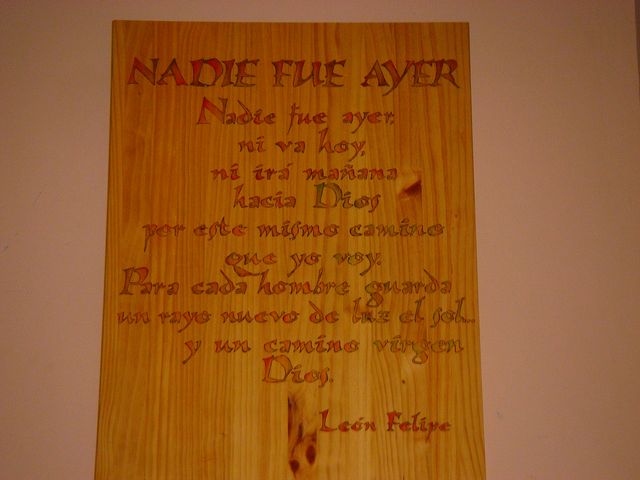 NADIE FUE AYER
Nadie fue ayer,
ni va hoy,
ni irá mañana
hacia Dios
por este mismo camino
que yo voy.
Para cada hombre guarda
un rayo nuevo de luz el sol...
y un camino virgen
Dios.
León Felipe